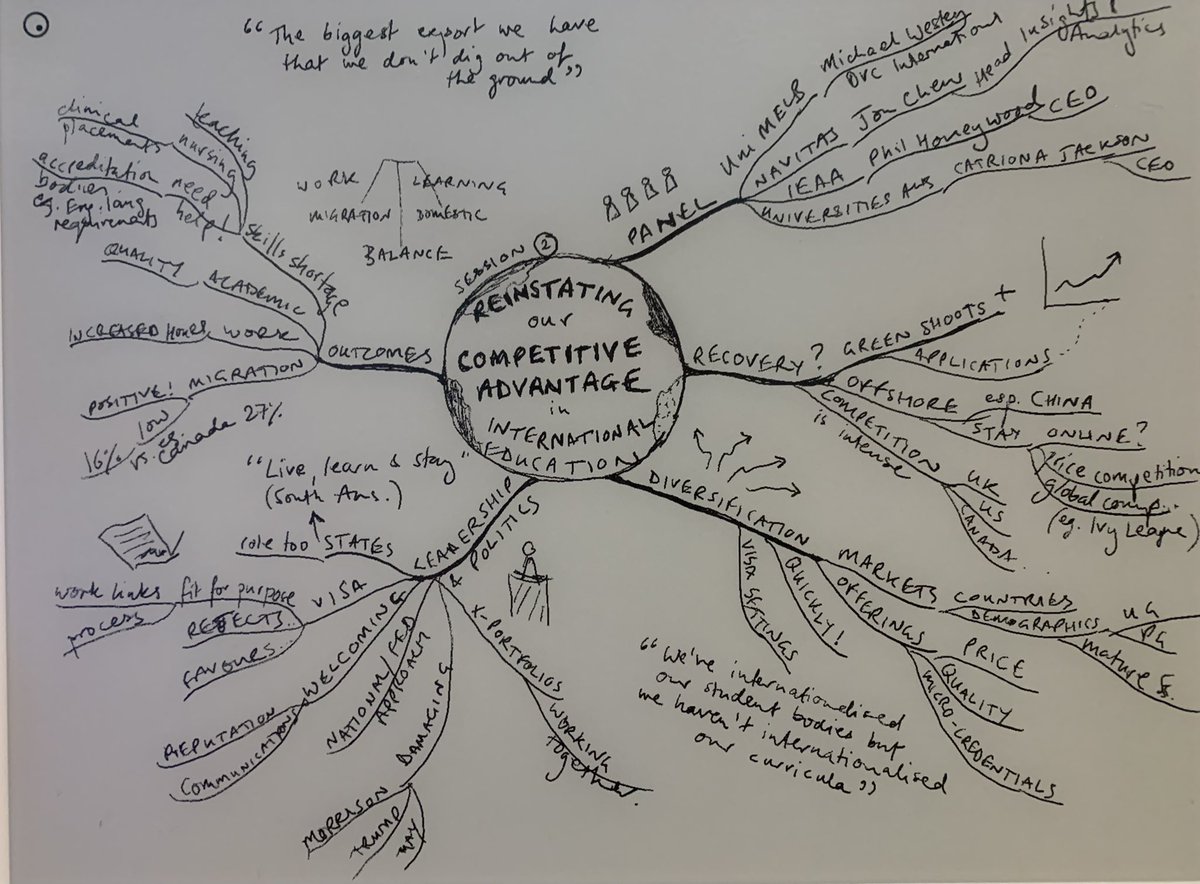 “The biggest export we have
that we don't dig out of
the ground”
SESSION 2
REINSTATING
our
COMPETITIVE
ADVANTAGE
in
INTERNATIONAL
EDUCATION
PANEL
Uni MELB
Michael Wesley
DVC International
NAVITAS
Jon Chew
Head Insights &
Analytics
IEAA
Phil Honeywood
CEO
UNIVERSITIES AUS
CATRIONA JACKSON
CEO
RECOVERY?
GREEN SHOOTS +
APPLICATIONS
OFFSHORE
esp. CHINA
STAY ONLINE?
price competition
global comp.
(eg. Ivy League)
COMPETITION
is intense
UK
US
CANADA
DIVERSIFICATION
MARKETS
COUNTRIES
DEMOGRAPHICS
UG
PG
mature
OFFERINGS
PRICE
QUALITY
MICRO-CREDENTIALS
QUICKLY!
VISA SETTINGS
“We've internationalised
our student bodies but
we haven't internationalised
our curricula”
LEADERSHIP
& POLITICS
X-PORTFOLIOS
WORKING
together
DAMAGING
MORRISON
TRUMP
MAY
NATIONAL/FED
APPROACH
WELCOMING
REPUTATION
COMMUNICATIONS
VISA
fit for purpose
work links
process
REJECTS
FAVOURS
STATES
role too
“Live, learn & stay”
(South Aus.)
OUTCOMES
MIGRATION
POSITIVE!
low
eg.
16% vs. Canada 27%
WORK
INCREASED HOURS
ACADEMIC
QUALITY
skills shortage
teaching
nursing
clinical
placements
need
help!
accreditation
bodies
eg. Eng. lang
requirements
WORK
LEARNING
MIGRATION
DOMESTIC
BALANCE